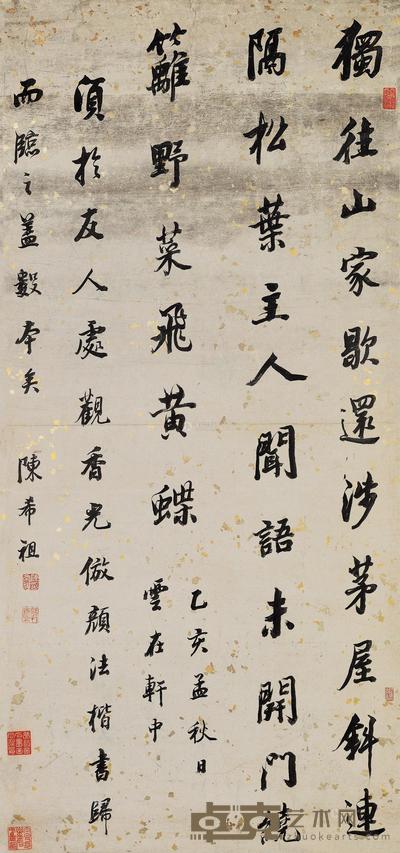 獨往山家歇還涉茅屋斜連
隔松葉主人聞語未開門繞
籬野菜飛黃蝶
乙亥孟秋日
雲在軒中
須於友人處觀香光倣顏法楷書歸
而臨之蓋數本矣
陳希祖
卓克艺术网